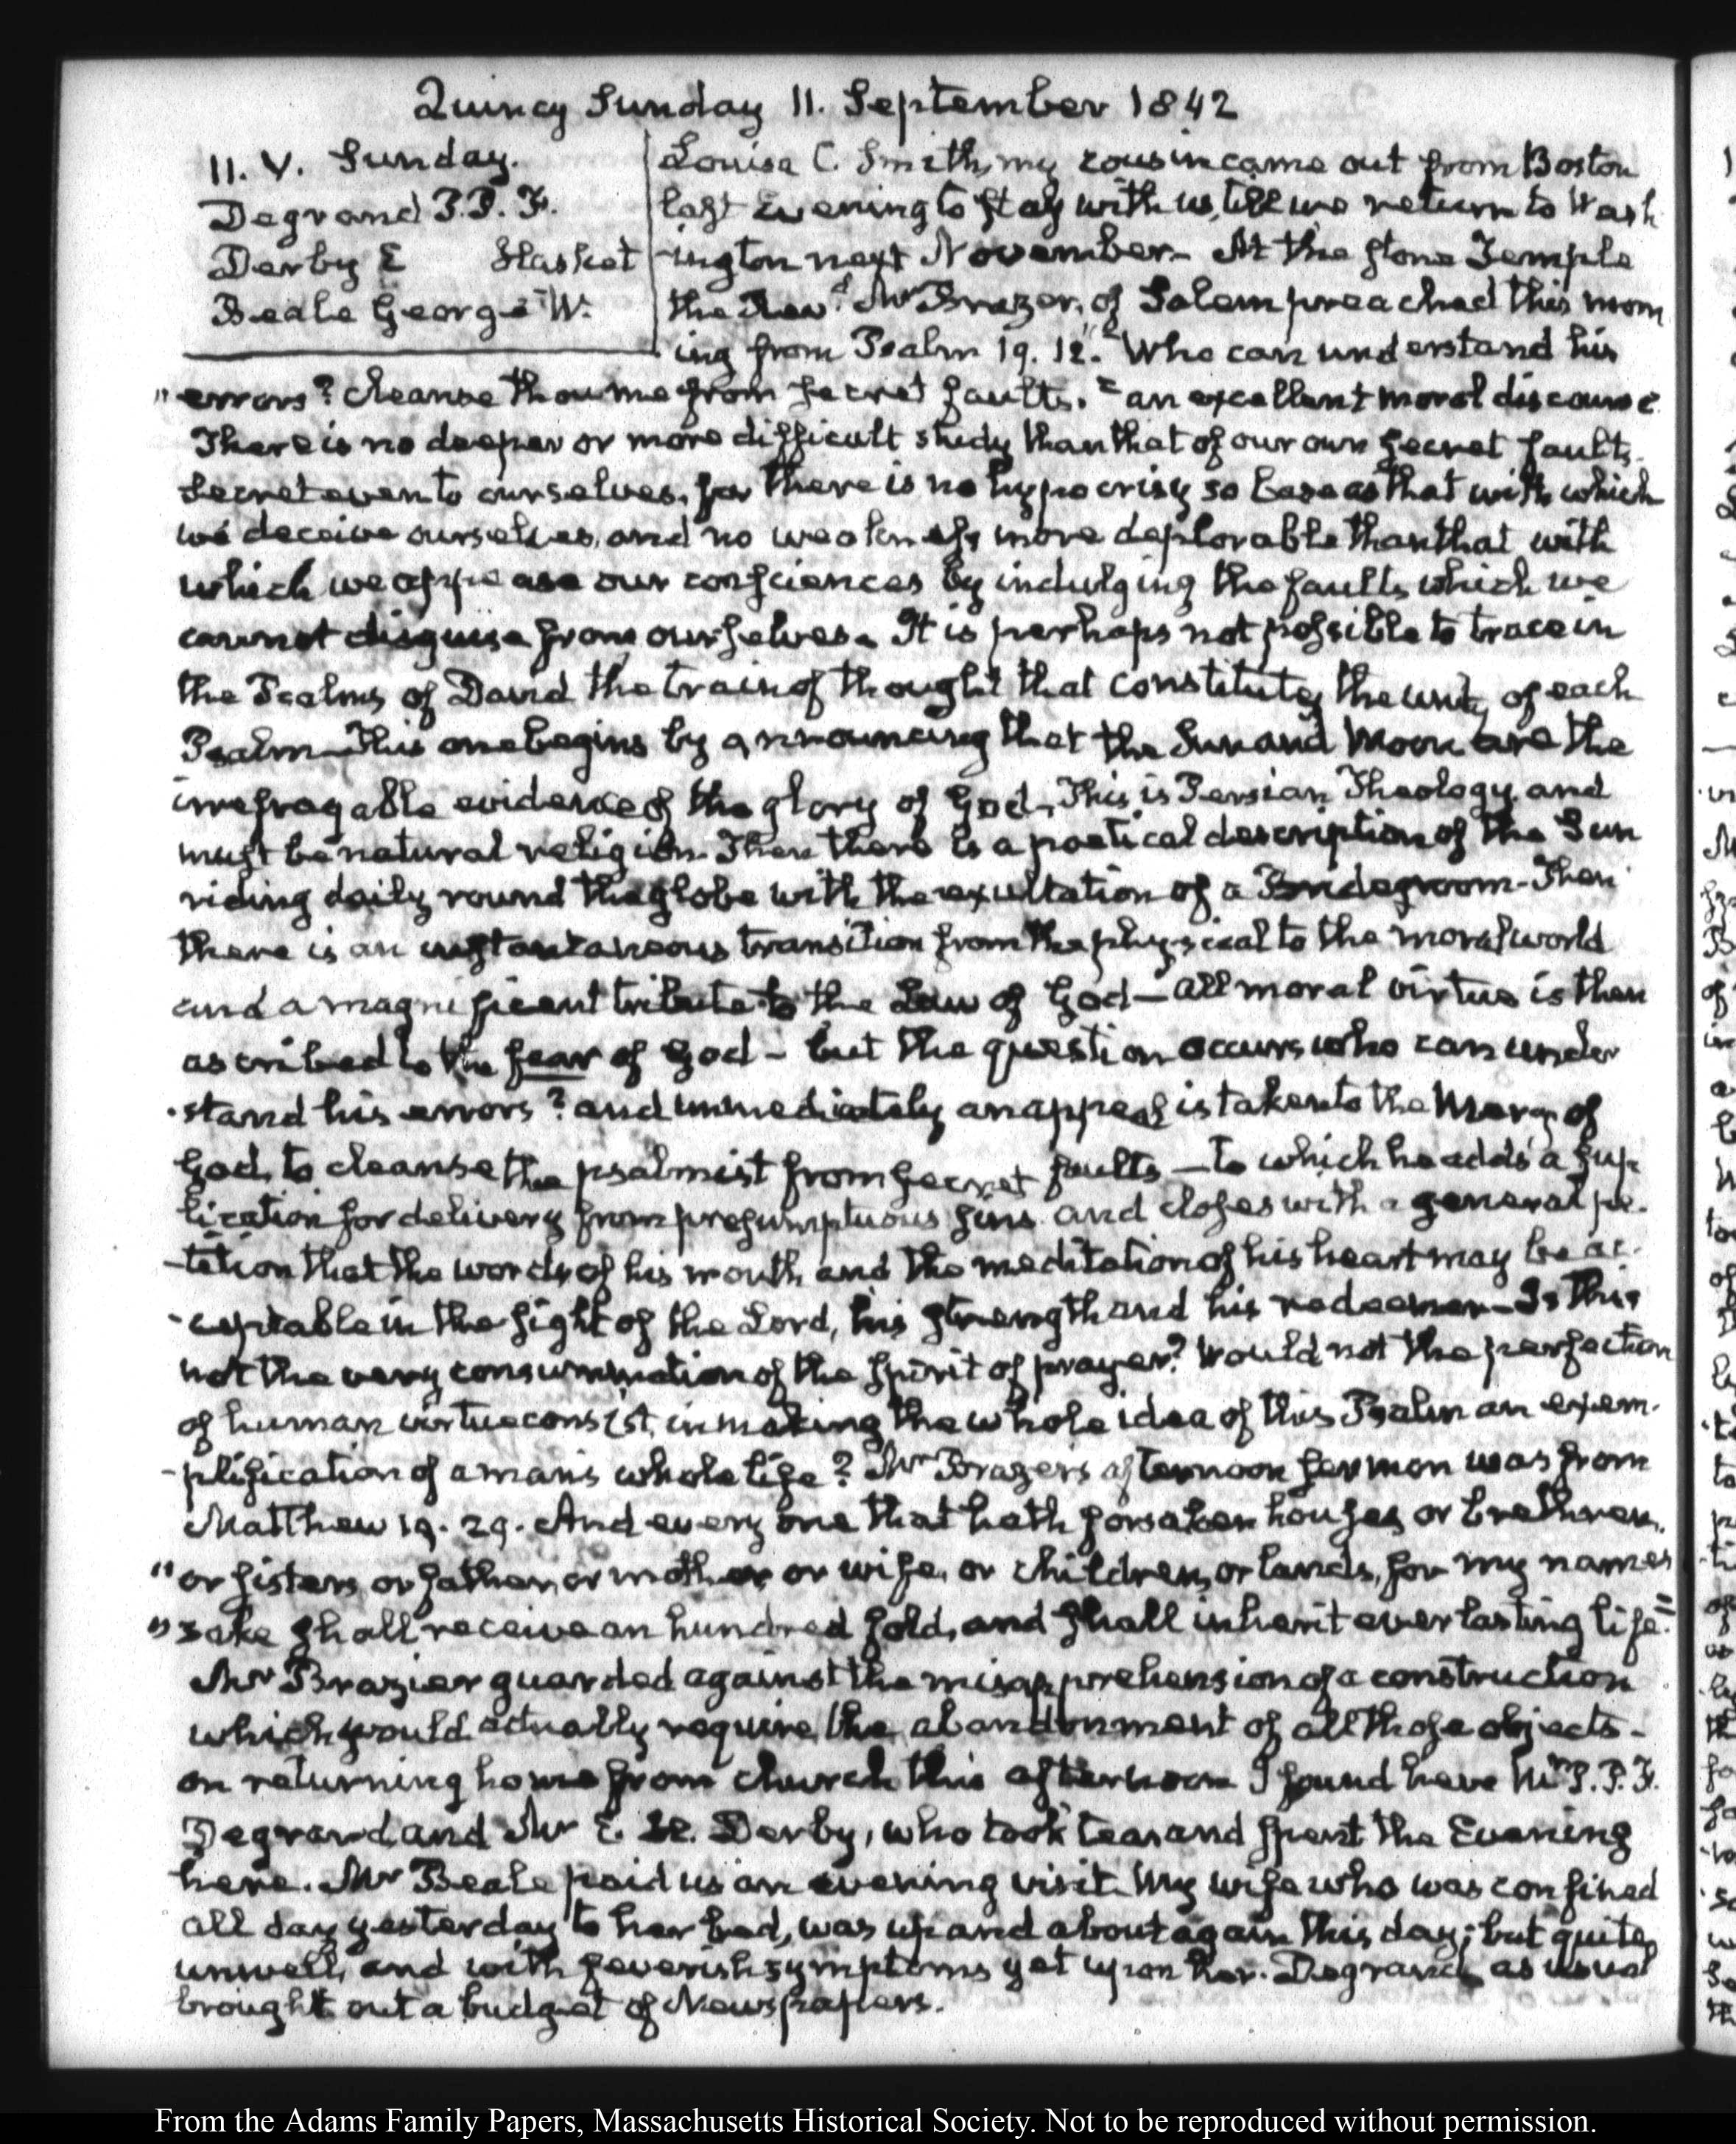 Quincy Sunday 11. September 1842
11. V. Sunday.
Degrand P.P.F.
Derby E Hasket
Beale George W.
Louisa C. Smith, my cousin came out from Boston
last Evening to stay with us, till we return to Wash
-ington next November- At the stone Temple
the Revd. Mr Brazer, of Salem preached this morn
ing from Psalm 19. 12. "Who can understand his
"errors? cleanse thou me from secret faults." an excellent moral discourse.
There is no deeper or more difficult study than that of our own secret faults.
Secret even to ourselves, for there is no hypocrisy so base as that with which
we deceive ourselves, and no weakness more deplorable than that with
which we appease our consciences by indulging the faults which we
cannot disguise from ourselves. It is perhaps not possible to trace in
the Psalms of David the train of thought that constitutes the unity of each
Psalm- This one begins by announcing that the Sun and Moon are the
irrefragable evidence of the glory of God. This is Persian Theology, and
must be natural religion- Then there is a poetical description of the Sun
riding daily round the globe with the exultation of a Bridegroom- Then
there is an instantaneous transition from the physical to the moral world
and a magnificent tribute to the Law of God- all moral virtue is then
ascribed to the fear of God- but the question occurs who can under
-stand his errors? and immediately an appeal is taken to the Mercy of
God, to cleanse the psalmist from secret faults- to which he adds a sup-
lication for delivery from presumptuous sins and closes with a general pe-
-tition that the words of his mouth and the meditation of his heart may be ac-
-ceptable in the sight of the Lord, his strength and his redeemer- Is this
not the very consummation of the spirit of prayer? Would not the perfection
of human virtue consist, in making the whole idea of this Psalm an exem-
-plification of a man's whole life? Mr Brazer's afternoon sermon was from
Matthew 19. 29. And every one that hath forsaken houses or brethren,
"or sisters, or father, or mother or wife, or children, or lands, for my names
"sake shall receive an hundred fold, and shall inherit everlasting life."
Mr Brazier guarded against the misapprehension of a construction
which would actually require the abandonment of all those objects-
on returning home from church this afternoon I found here Mr P.P.F.
Degrand and Mr E. H. Derby, who took tea and spent the Evening
here. Mr Beale paid us an evening visit. My wife who was confined
all day yesterday to her bed, was up and about again this day; but quite
unwell, and with feverish symptoms yet upon her. Degrand, as usual
brought out a budget of Newspapers.
From the Adams Family Papers, Massachusetts Historical Society. Not to be reproduced without permission.